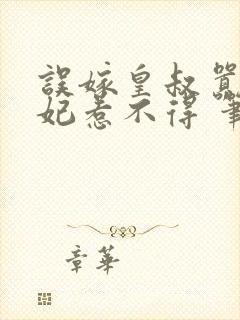 誤嫁皇叔
妃惹不得 筆
章華